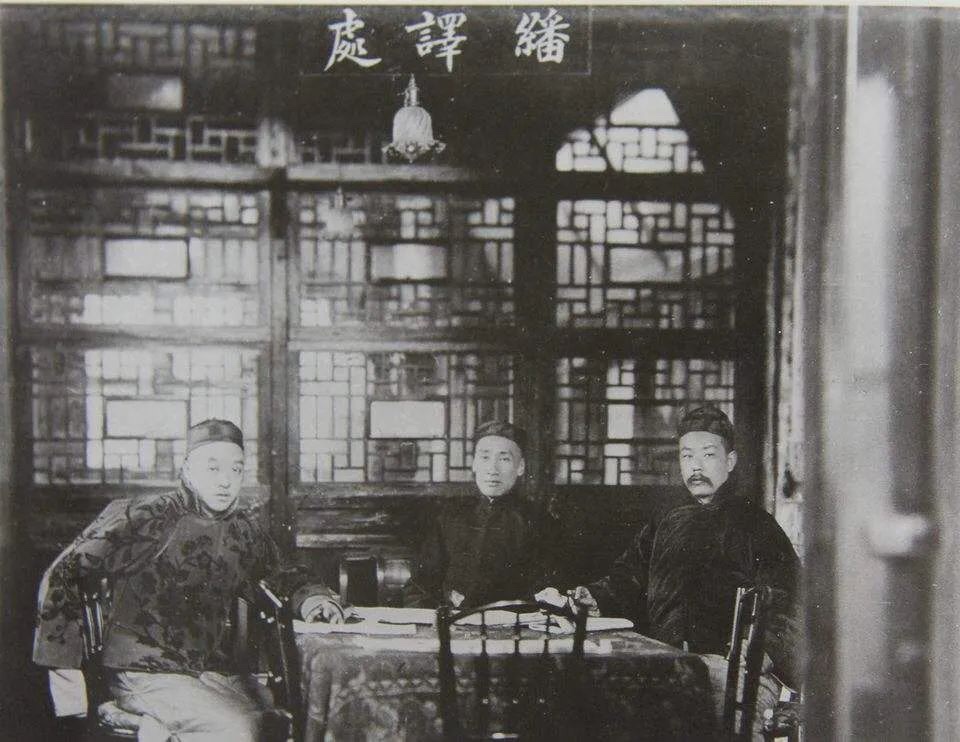 繙譯處